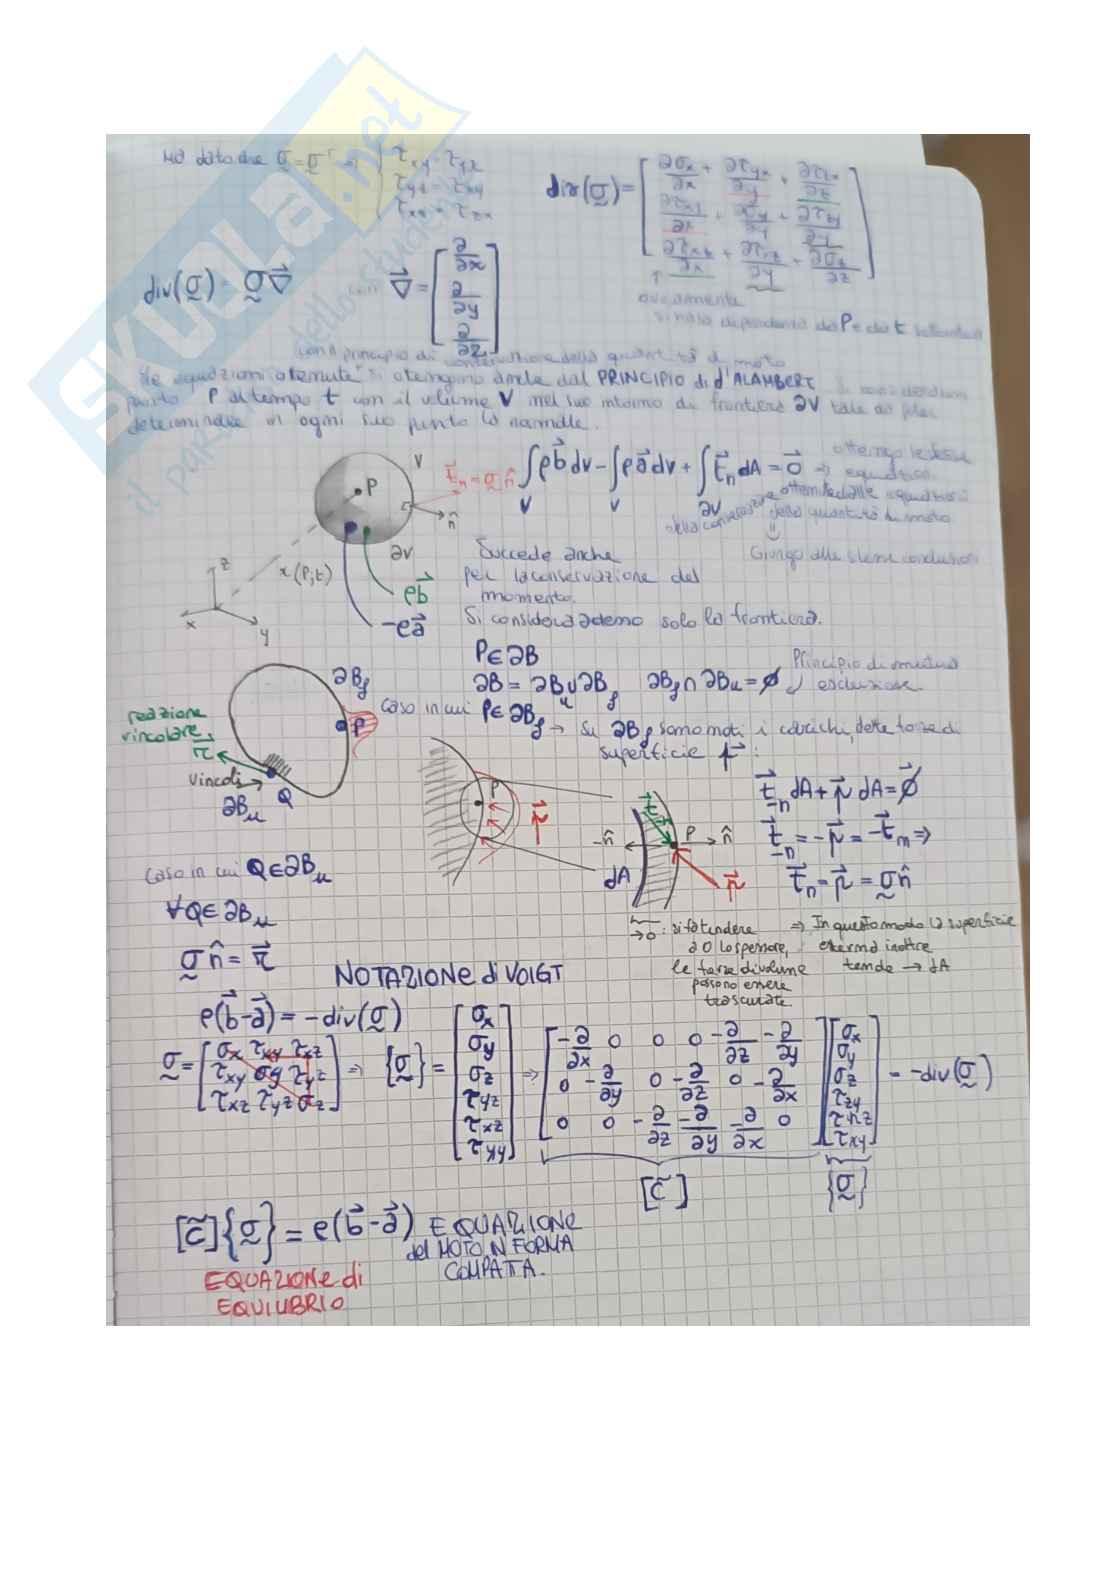 Ma dato che σ = σᵀ ⇒ { τxy = τyx
τyz = τzy
τxz = τzx
div(σ) = [ ∂σx/∂x + ∂τyx/∂y + ∂τzx/∂z
∂τxy/∂x + ∂σy/∂y + ∂τzy/∂z
∂τxz/∂x + ∂τyz/∂y + ∂σz/∂z ]
div(σ) = σ∇⃗ con ∇⃗ = [ ∂/∂x
∂/∂y
∂/∂z ]
ovviamente
dipendenti da P e da t
con il principio di conservazione della quantità di moto
"Le equazioni ottenute" si ottengono anche dal PRINCIPIO di d'ALAMBERT
punto P al tempo t con il volume V nel suo intorno di frontiera ∂V tale da poter
determinare in ogni suo punto la normale.
P
V
t⃗n = σ n̂
n̂
∂V
x(P;t)
ρb⃗
-ρa⃗
z
x
y
∫V ρb⃗ dv - ∫V ρa⃗ dv + ∫∂V t⃗n dA = 0⃗ ⇒ ottengo le stesse
equazioni
ottenute dalle equazioni
della conservazione della quantità di moto
Giungo alle stesse conclusioni
Succede anche
per la conservazione del
momento.
Si considera ademo solo la frontiera.
P∈∂B
∂B = ∂Bu ∪ ∂Bf ∂Bf ∩ ∂Bu = ∅ Principio di mutua
esclusione
∂Bf
P
reazione
vincolare
r⃗
vincoli →
∂Bu Q
caso in cui P∈∂Bf → su ∂Bf sono noti i carichi, dette forze di
superficie f⃗ :
P
p⃗
t⃗-n
-n̂
P
n̂
dA
p⃗
t⃗-n dA + p⃗ dA = 0⃗
t⃗-n = -p⃗ = -t⃗n ⇒
t⃗n = p⃗ = σ n̂
caso in cui Q∈∂Bu
∀Q∈∂Bu
σ n̂ = r⃗
→0 : si fa tendere
a 0 lo spessore,
le forze di volume
possono essere
trascurate
⇒ In questo modo la superficie
esterna inoltre
tende → dA
NOTAZIONE di VOIGT
ρ(b⃗-a⃗) = -div(σ)
σ = [ σx τxy τxz
τxy σy τyz
τxz τyz σz ] ⇒ {σ} = [ σx
σy
σz
τyz
τxz
τxy ] ⇒ [ -∂/∂x 0 0 0 -∂/∂z -∂/∂y
0 -∂/∂y 0 -∂/∂z 0 -∂/∂x
0 0 -∂/∂z -∂/∂y -∂/∂x 0 ] [ σx
σy
σz
τzy
τxz
τxy ] = -div(σ)
[c̃] {σ}
[c̃]{σ} = ρ(b⃗-a⃗) EQUAZIONE
del MOTO IN FORMA
COMPATTA.
EQUAZIONE di
EQUILIBRIO
SKUOLA.net
il paradiso dello studente